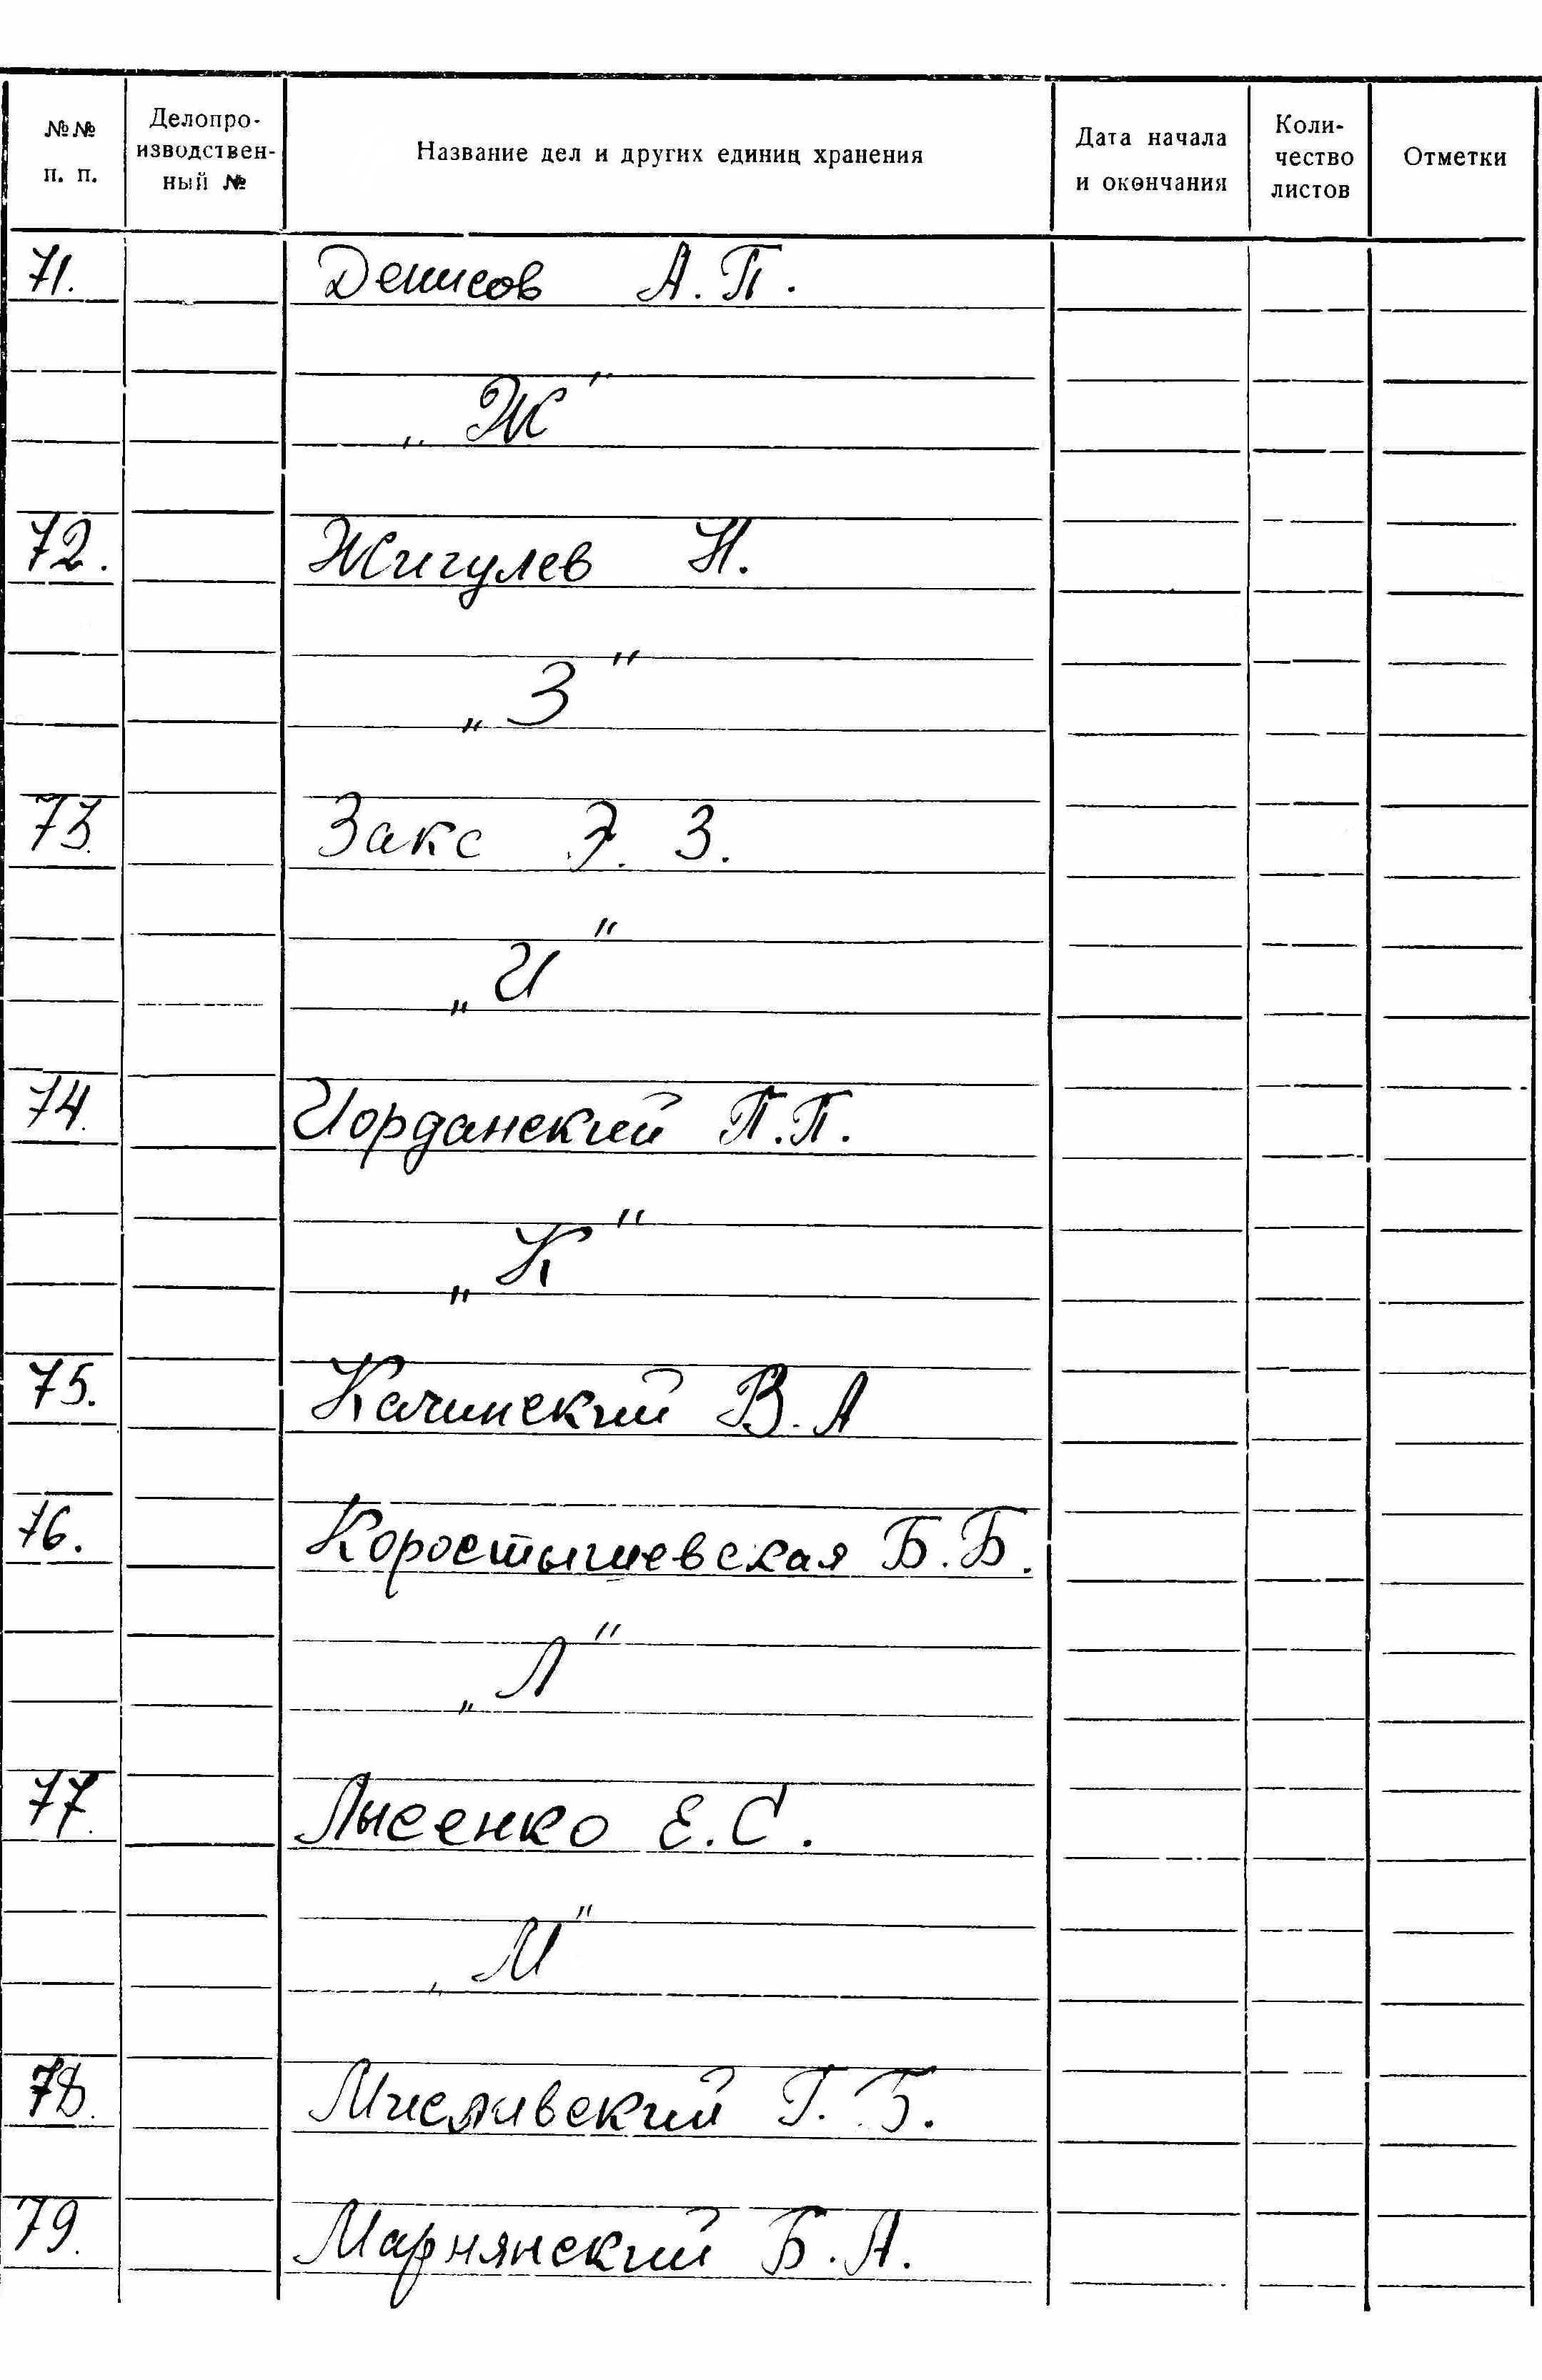 №№ п. п.
Делопро-
изводствен-
ный №
Название дел и других единиц хранения
Дата начала
и окончания
Коли-
чество
листов
Отметки
71. Денисов А.П.
„Ж"
72. Жигулев Н.
„З"
73. Закс Э. З.
„И"
74. Иорданский П.П.
„К"
75. Качинский В.А
76. Коростышевская Б.Б.
„Л"
77. Лысенко Е.С.
„М"
78. Мисливский Г. Б.
79. Марнянский Б.А.